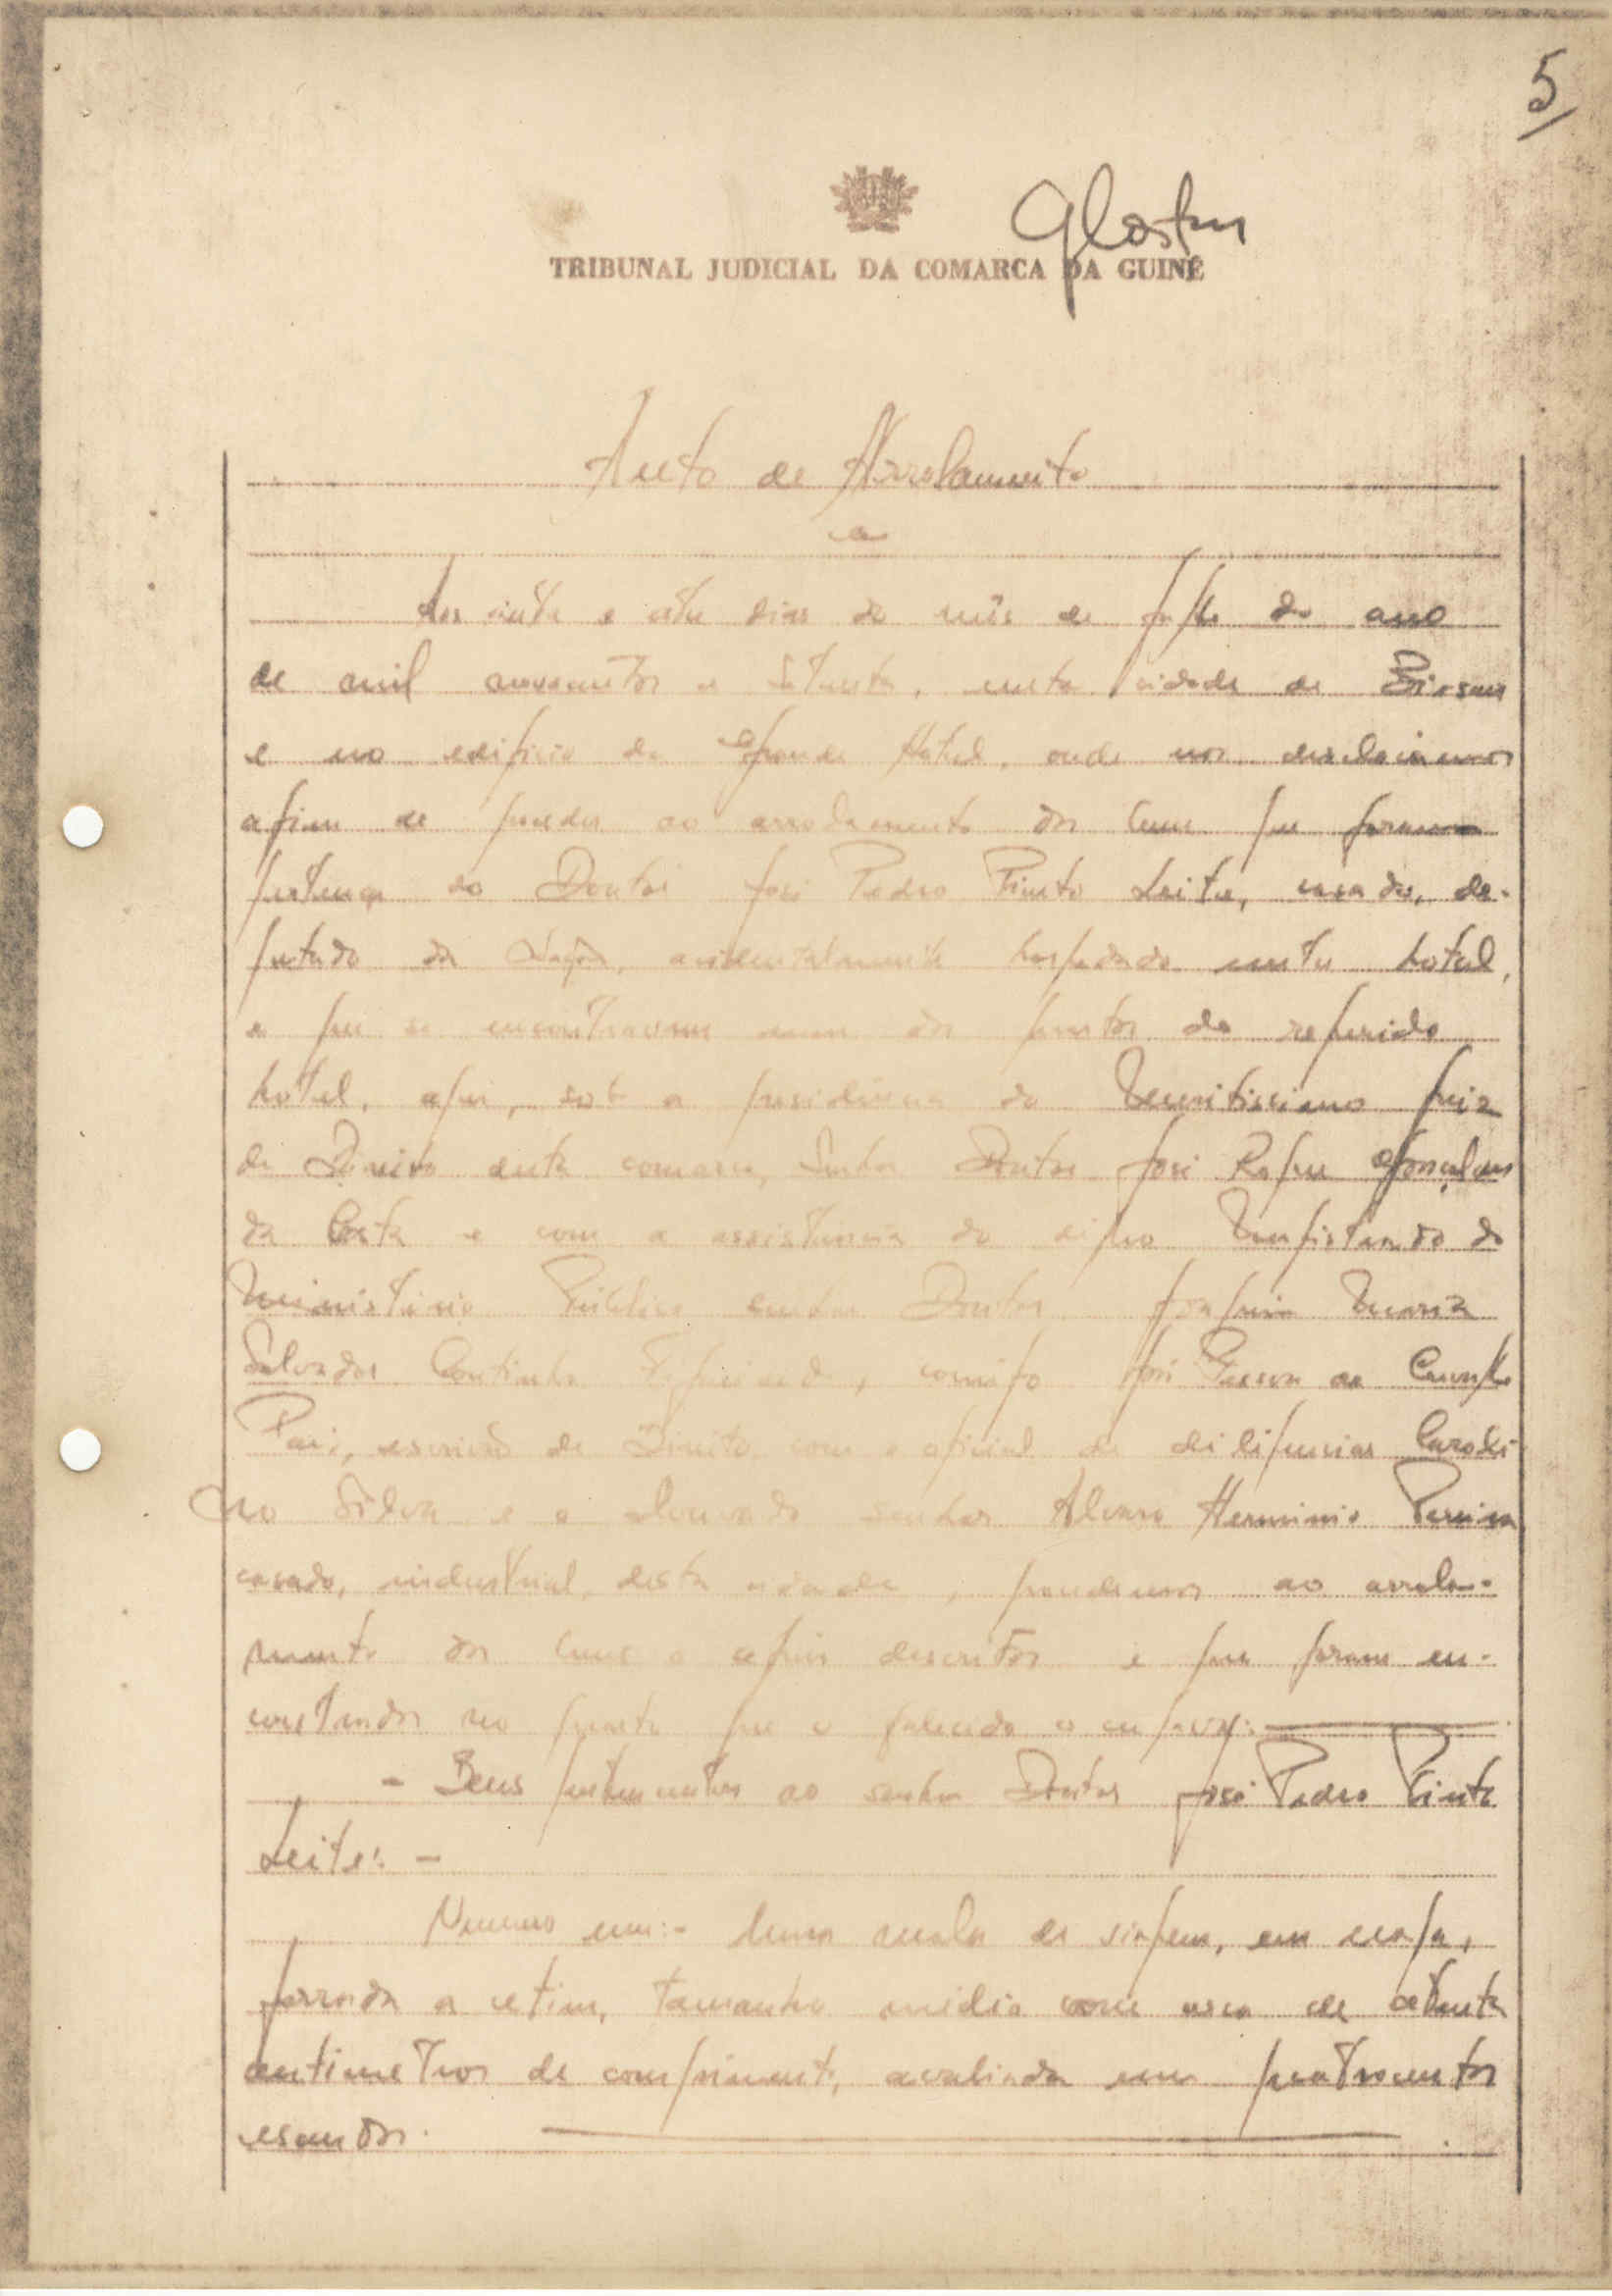 5
TRIBUNAL JUDICIAL DA COMARCA DA GUINÉ
Auto de Arrolamento
Aos vinte e sete dias do mês de Julho do ano
de mil novecentos e setenta, nesta cidade de Bissau
e no edificio do Grande Hotel, onde nos deslocámos
afim de proceder ao arrolamento dos bens que foram
pertença do Doutor José Pedro Pinto Leite, casado, de-
putado da Nação, acidentalmente hospedado neste hotel,
e que se encontravam num dos quartos do referido
hotel, aqui, sob a presidência do Meritissimo Juiz
de Direito desta comarca, Senhor Doutor José Roque Gonçalves
da Costa e com a assistência do digno Magistrado do
Ministério Público senhor Doutor Joaquim Maria
Salvador Coutinho, comigo José de Carvalho
Pais, escrivão de Direito com o oficial de diligencias Caroli-
no Silva e o louvado senhor Alvaro Herminio Pereira
casado, industrial, desta cidade, procedemos ao arrola-
mento dos bens aqui descritos e que foram en-
contrados no quarto que o falecido ocupava:
- Bens pertencentes ao senhor Doutor José Pedro Pinto
Leite: -
Numero um:- Uma mala de viagem, em napa,
forrada a cetim, tamanho médio com cerca de setenta
centimetros de comprimento, avaliada em quatrocentos
escudos.